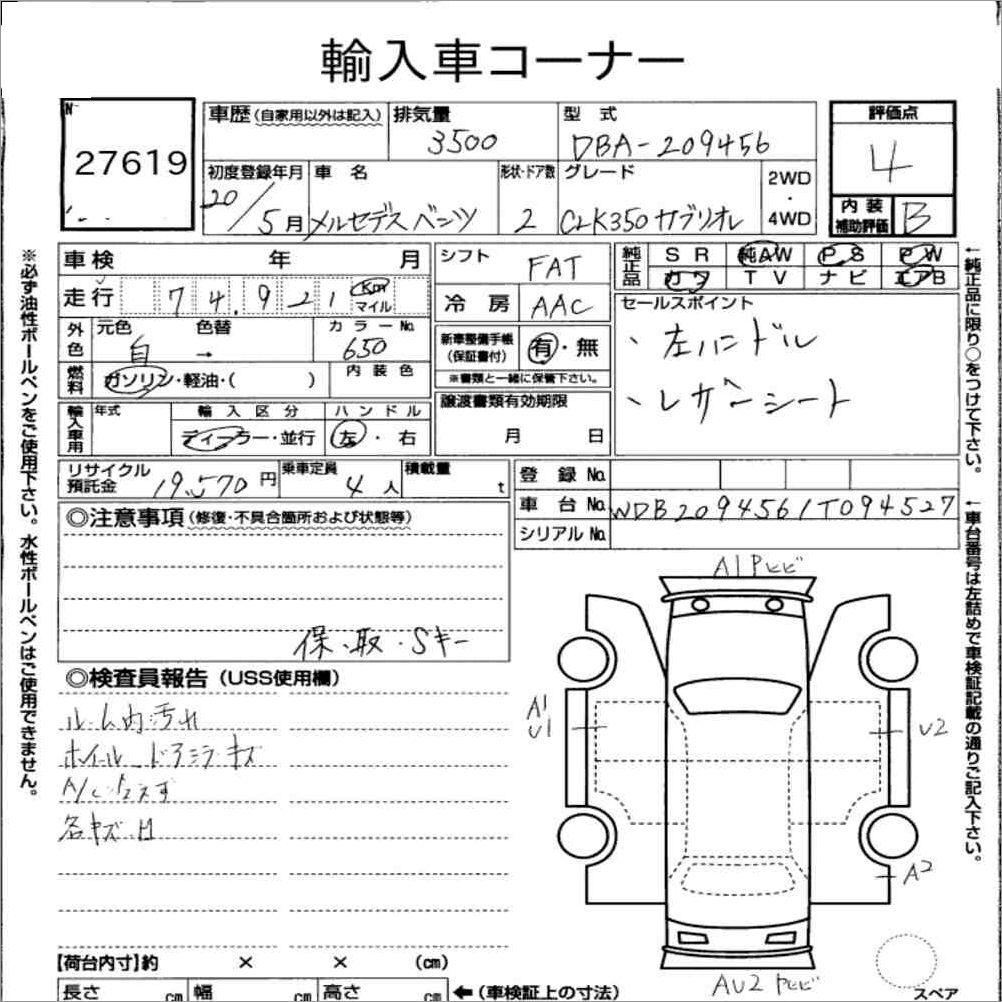 輸入車コーナー
27619
車歴(自家用以外は記入)
排気量
3500
型式
DBA-209456
評価点
4
初度登録年月
20/5月
車名
メルセデスベンツ
形状・ドア数
2
グレード
CLK350カブリオレ
2WD
・
4WD
内装
補助評価
B
車検 年 月
走行 74,921 Km
マイル
外色
元色 白
色替 →
カラーNo. 650
燃料
ガソリン・軽油・( )
内装色
輸入車用
年式
輸入区分
ディーラー・並行
ハンドル
左・右
リサイクル預託金 19,570円
乗車定員 4人
積載量 t
シフト FAT
冷房 AAC
新車整備手帳
(保証書付)
有・無
※書類と一緒に保管下さい。
譲渡書類有効期限
月 日
純正品
SR 純AW PS PW
カワ TV ナビ エアB
セールスポイント
、左ハンドル
、レザーシート
登録No.
車台No. WDB2094561T094527
シリアルNo.
◎注意事項(修復・不具合箇所および状態等)
保、取、Sキー
◎検査員報告(USS使用欄)
ルーム内汚れ
ホイール ドアミラーキズ
各キズ
A1
A1
U1
U2
A2
AU2
【荷台内寸】約 × × (cm)
長さ cm 幅 cm 高さ cm ←(車検証上の寸法)
スペア
※必ず油性ボールペンをご使用下さい。水性ボールペンはご使用できません。
←純正品に限り○をつけて下さい。
←車台番号は左詰めで車検証記載の通りご記入下さい。